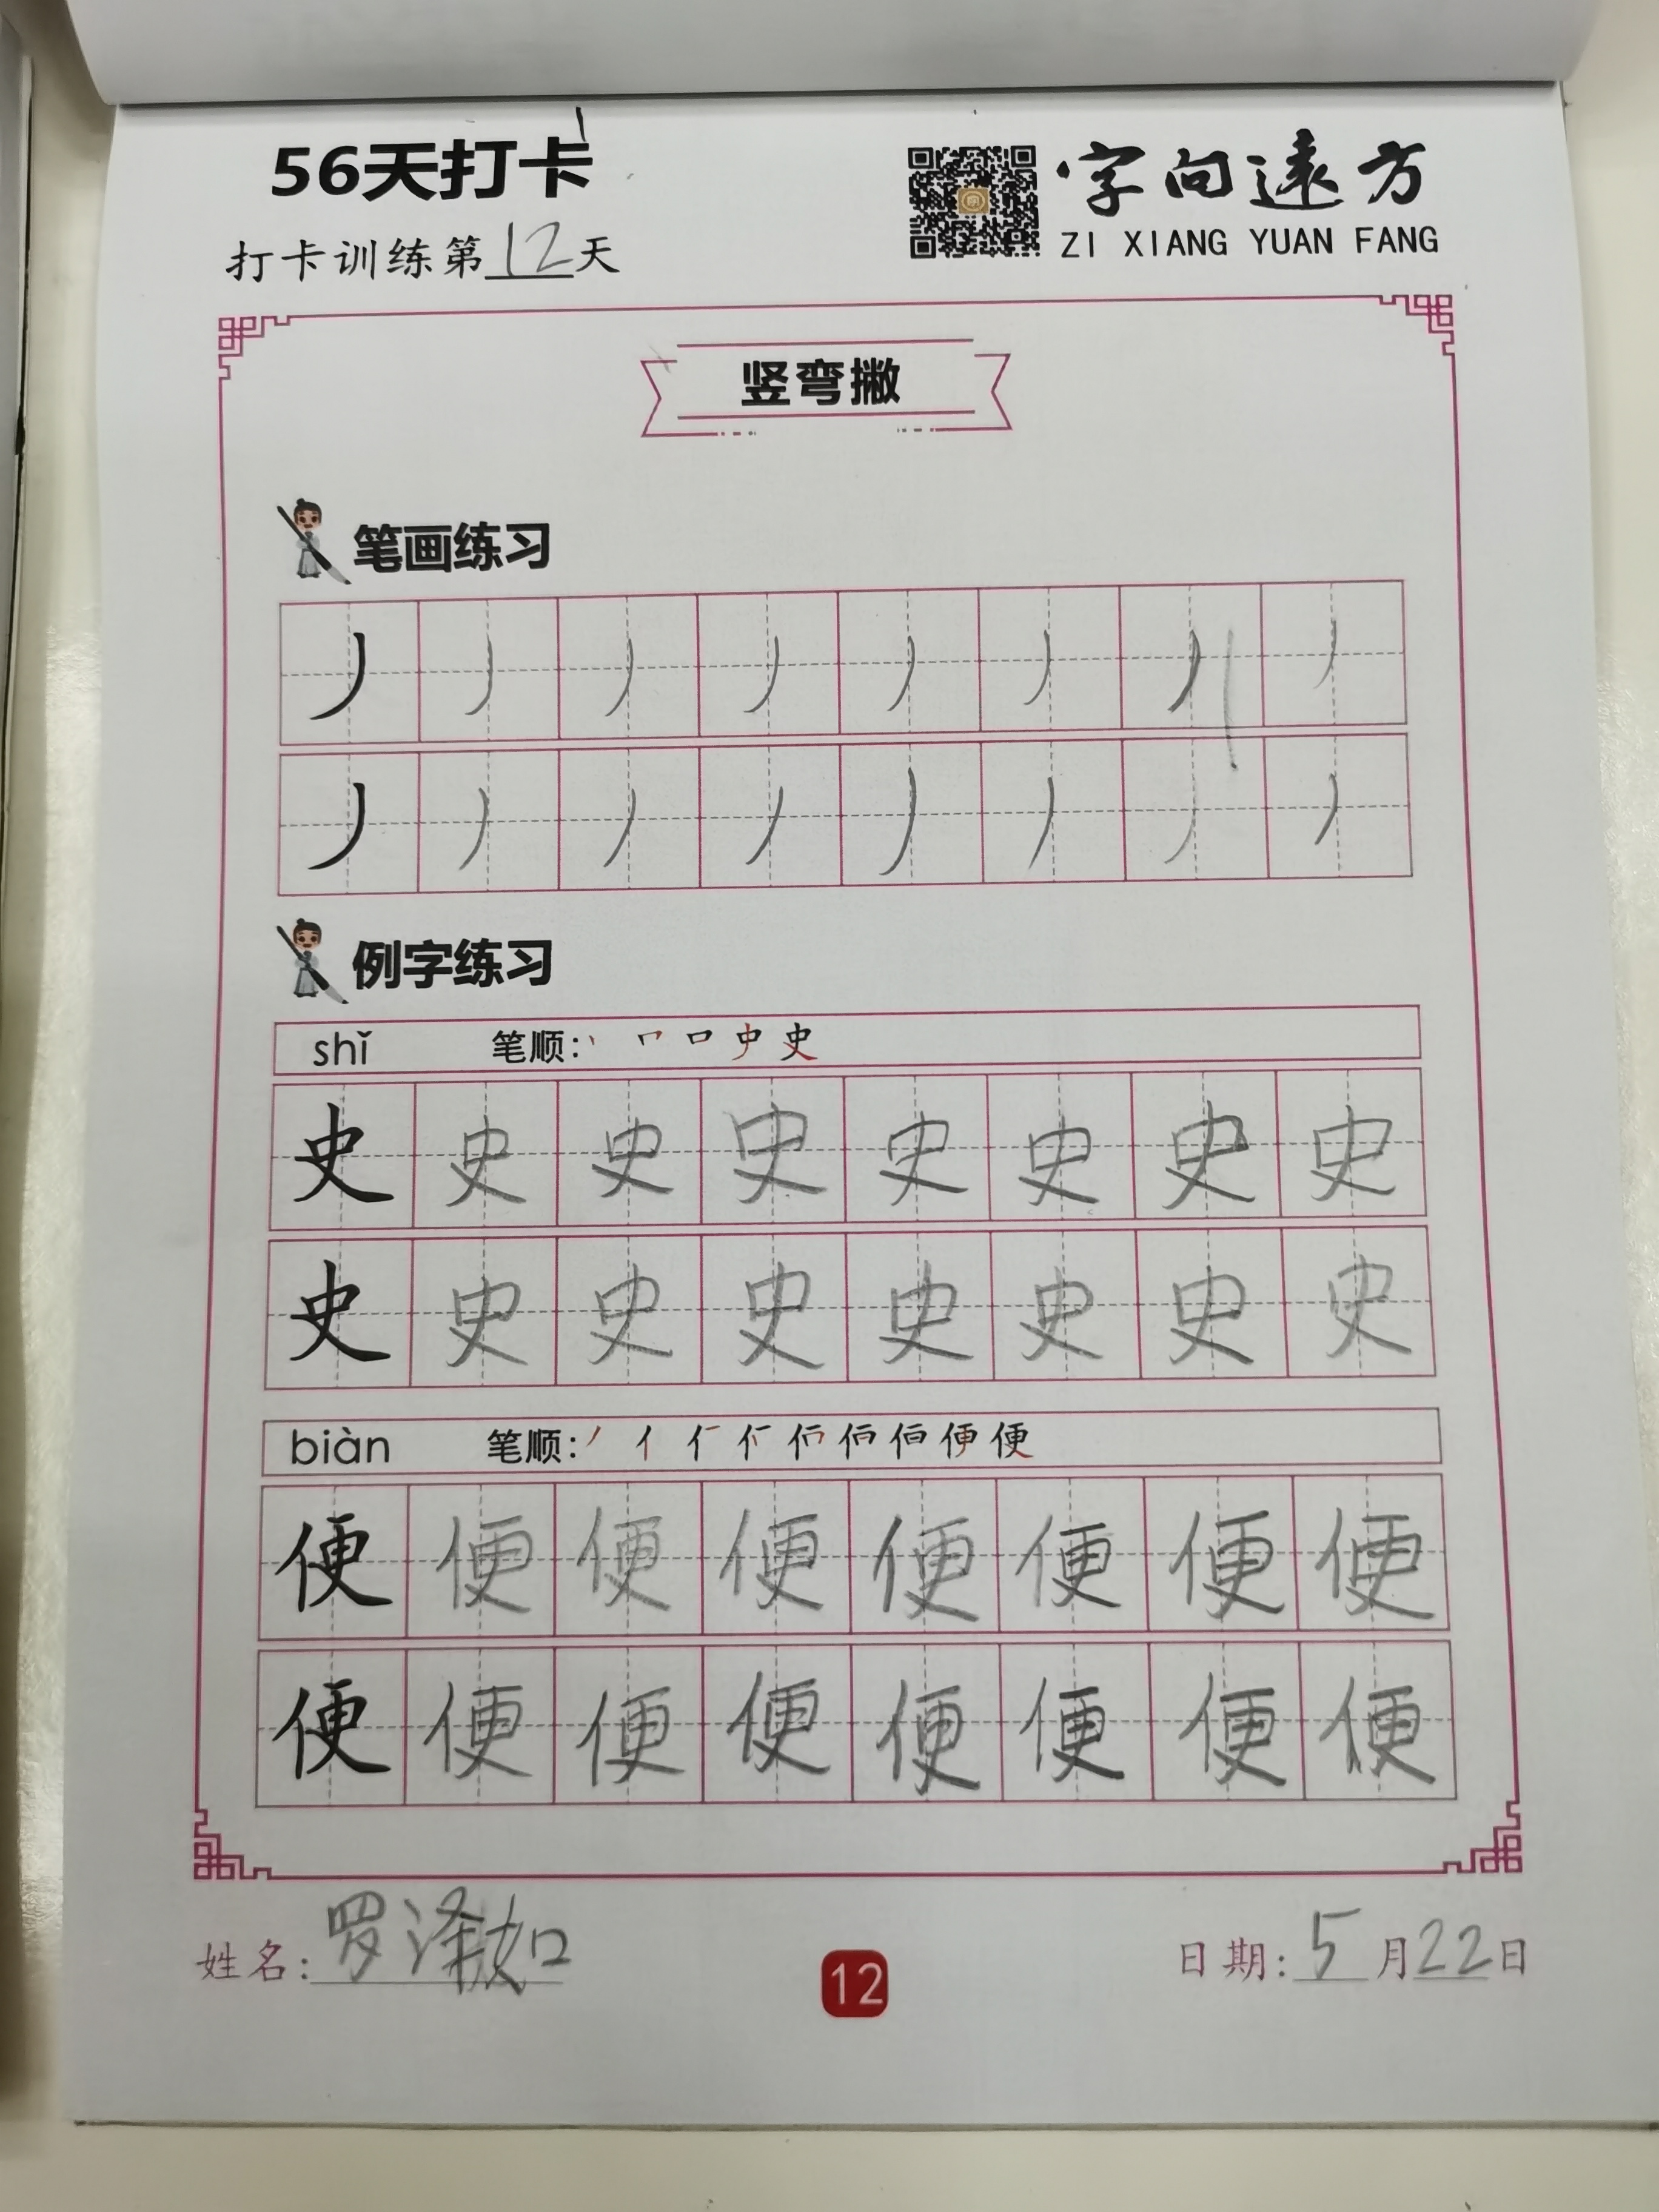 56天打卡
字向遠方
ZI XIANG YUAN FANG
打卡训练第12天
竖弯撇
笔画练习
丿丿丿丿丿丿丿丿
丿丿丿丿丿丿丿丿
例字练习
shǐ 笔顺:
史史史史史史史史
史史史史史史史史
biàn 笔顺:
便便便便便便便便
便便便便便便便便
姓名:罗泽如
12
日期:5月22日